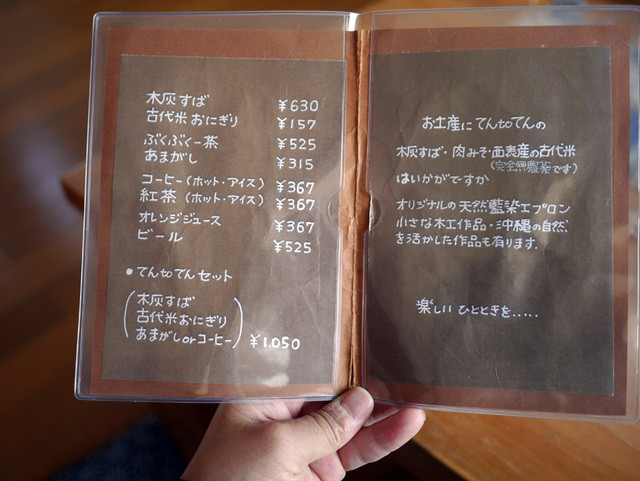 木灰すば ¥630
古代米おにぎり ¥157
ぶくぶくー茶 ¥525
あまがし ¥315
コーヒー(ホット・アイス) ¥367
紅茶(ホット・アイス) ¥367
オレンジジュース ¥367
ビール ¥525
●てんtoてんセット
木灰すば
古代米おにぎり
あまがしorコーヒー ¥1,050
お土産にてんtoてんの
木灰すば・肉みそ・西表産の古代米
(完全無農薬です)
はいかがですか
オリジナルの天然藍染エプロン
小さな木工作品・沖縄の自然
を活かした作品も有ります。
楽しいひとときを.....